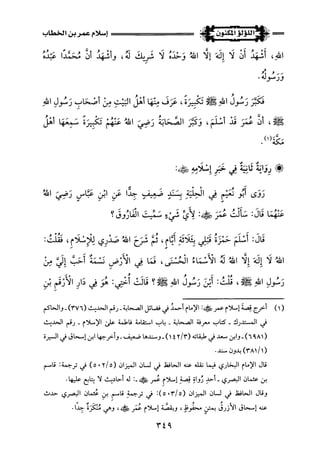 إسلام عمر بن الخطاب
اللؤلؤ المكنون
اللهِ، أَشْهَدُ أَنْ لَا إِلَهَ إِلَّا اللهُ وَحْدَهُ لَا شَرِيكَ لَهُ، وأشْهَدُ أنَّ مُحَمَّدًا عَبْدُهُ
وَرَسُولُهُ.
فكَبَّرَ رَسُولُ اللهِ ﷺ تَكْبِيرَةً، عَرَفَ مِنْهَا أهْلُ البَيْتِ مِنْ أصْحَابِ رَسُولِ اللهِ
ﷺ، أنَّ عُمَرَ قَدْ أسْلَمَ، وَكَبَّرَ الصَّحَابَةُ رَضِيَ اللهُ عَنْهُمْ تَكْبِيرَةً سَمِعَهَا أهْلُ
مَكَّةَ(١).
رِوَايَةٌ ثَانِيَةٌ فِي خَبَرِ إِسْلَامِهِ ﷺ:
رَوَى أَبُو نُعَيْمٍ فِي الْحِلْيَةِ بِسَنَدٍ ضَعِيفٍ جِدًّا عَنِ ابْنِ عَبَّاسٍ رَضِيَ اللهُ
عَنْهُمَا قَالَ: سَأَلْتُ عُمَرَ: لِأَيِّ شَيْءٍ سُمِّيتَ الْفَارُوقَ؟
قَالَ: أَسْلَمَ حَمْزَةُ قَبْلِي بِثَلَاثَةِ أيَّامٍ، ثُمَّ شَرَحَ اللهُ صَدْرِي لِلْإِسْلَامِ، فَقُلْتُ:
اللهُ لَا إِلَهَ إِلَّا اللهُ لَهُ الْأَسْمَاءُ الْحُسْنَى، فَمَا فِي الْأَرْضِ نَسْمَةٌ أَحَبَّ إِلَيَّ مِنْ
رَسُولِ اللهِ ﷺ، قُلْتُ: أَيْنَ رَسُولُ اللهِ ﷺ؟ قَالَتْ أُخْتِي: هُوَ فِي دَارِ الْأَرْقَمِ بْنِ
(١) أخرج قِصةَ إسلام عمر: الإمام أحمدُ في فضائل الصحابة ـ رقم الحديث (٣٧٦) ـ والحاكم
في المستدرك ـ كتاب معرفة الصحابة ـ باب استقامة فاطمة على الإسلام ـ رقم الحديث
(٦٩٨١) ـ وابن سعد في طبقاته (١٤٢/٣) ـ وسندها ضعيف ـ وأخرجها ابن إسحاق في السيرة
(٣٨١/١) بدون سند.
قال الإمام البخاري فيما نقله عنه الحافظ في لسان الميزان (٥٠٢/٥) في ترجمة: قاسم
بن عثمان البصري ـ أحد رُواةِ قِصة إسلام عُمر: له أحاديث لا يتابع عليها.
وقال الحافظ في لسان الميزان (٥٠٣/٥): في ترجمة قاسم بن عُثمان البصري حدث
عنه إسحاق الأزرقُ بمتنٍ محفُوظٍ، وبقصَّة إسلام عُمَر، وهي مُنْكَرَةٌ جِدًّا.
٣٤٩